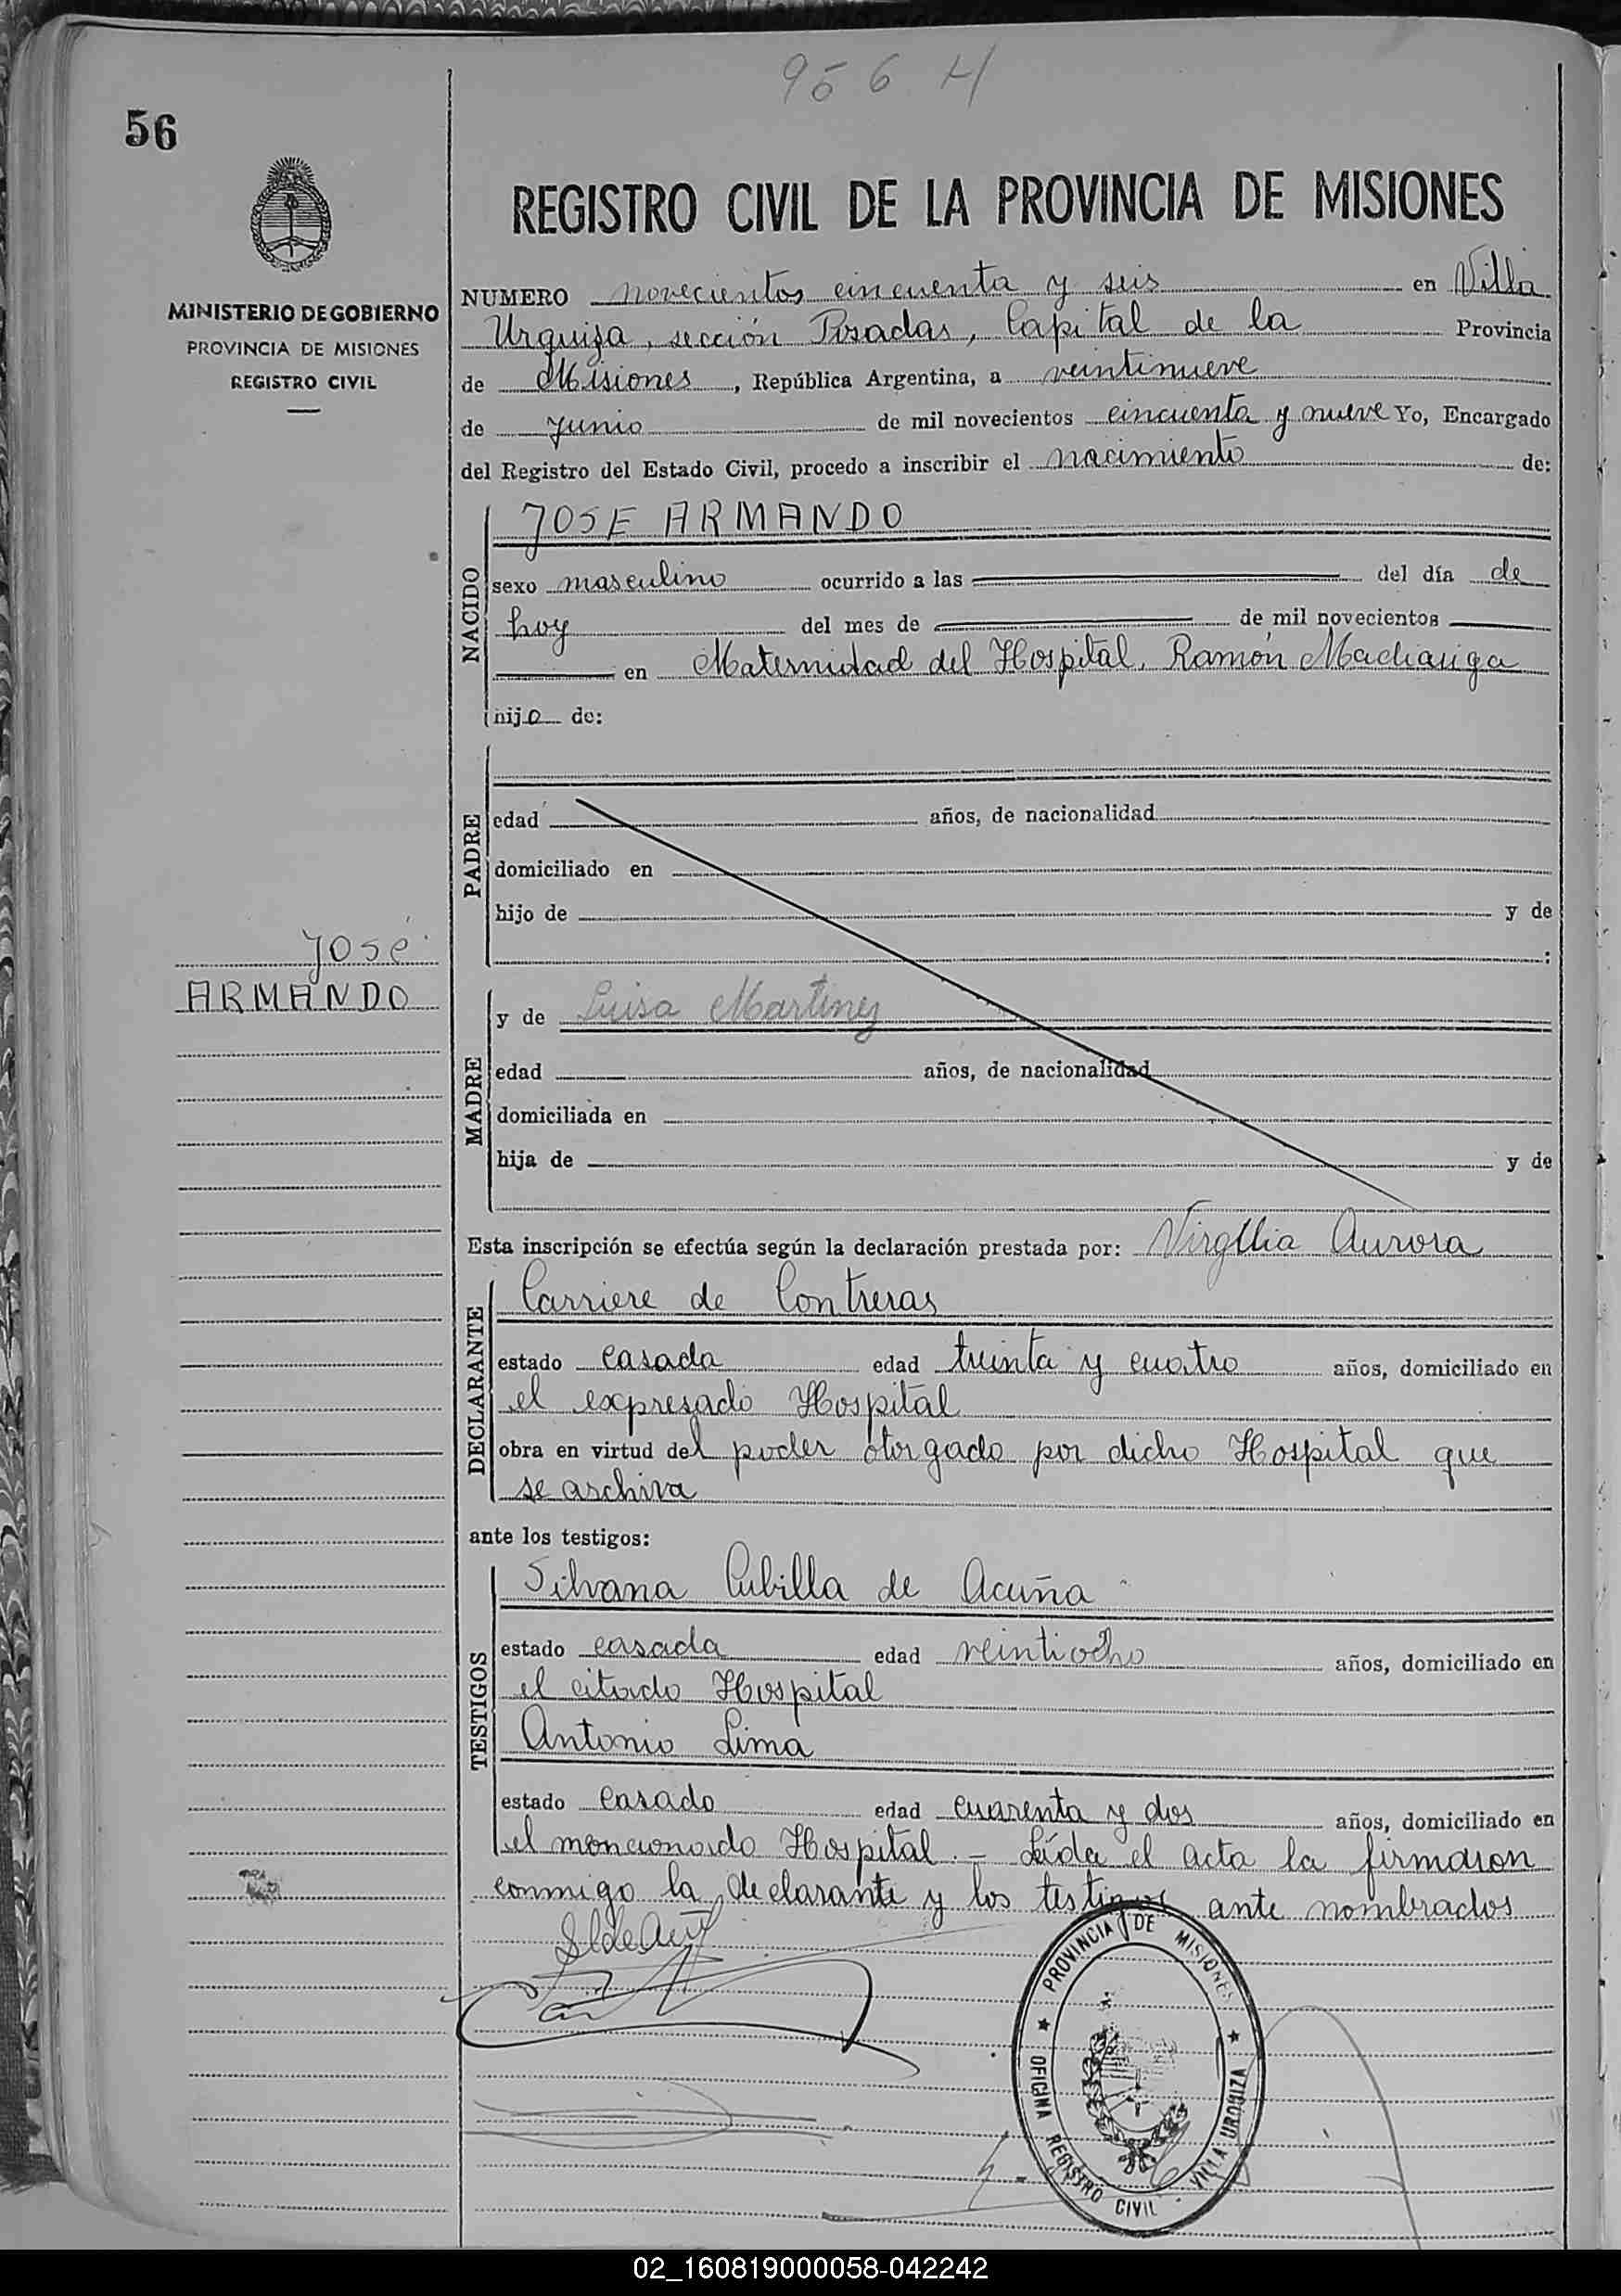 956 H
56
REGISTRO CIVIL DE LA PROVINCIA DE MISIONES
MINISTERIO DE GOBIERNO
PROVINCIA DE MISIONES
REGISTRO CIVIL
NUMERO novecientos cincuenta y seis en Villa
Urquiza, sección Posadas, Capital de la Provincia
de Misiones, República Argentina, a veintinueve
de Junio de mil novecientos cincuenta y nueve Yo, Encargado
del Registro del Estado Civil, procedo a inscribir el nacimiento de:
NACIDO
JOSE ARMANDO
sexo masculino ocurrido a las del día de
hoy del mes de de mil novecientos
en Maternidad del Hospital, Ramón Madariaga
hijo de:
PADRE
edad años, de nacionalidad
domiciliado en
hijo de y de
:
José
ARMANDO
MADRE
y de Luisa Martinez
edad años, de nacionalidad
domiciliada en
hija de y de
Esta inscripción se efectúa según la declaración prestada por: Virgllia Aurora
DECLARANTE
Carriere de Contreras
estado casada edad treinta y cuatro años, domiciliado en
el expresado Hospital
obra en virtud del poder otorgado por dicho Hospital que
se archiva
ante los testigos:
TESTIGOS
Silvana Cubilla de Acuña
estado casada edad veintiocho años, domiciliado en
el citado Hospital
Antonio Lima
estado casado edad cuarenta y dos años, domiciliado en
el moncionado Hospital.- Leída el acta la firmaron
conmigo la declarante y los testigos ante nombrados
PROVINCIA DE MISIONES
OFICINA REGISTRO CIVIL - VILLA URQUIZA
02_160819000058-042242